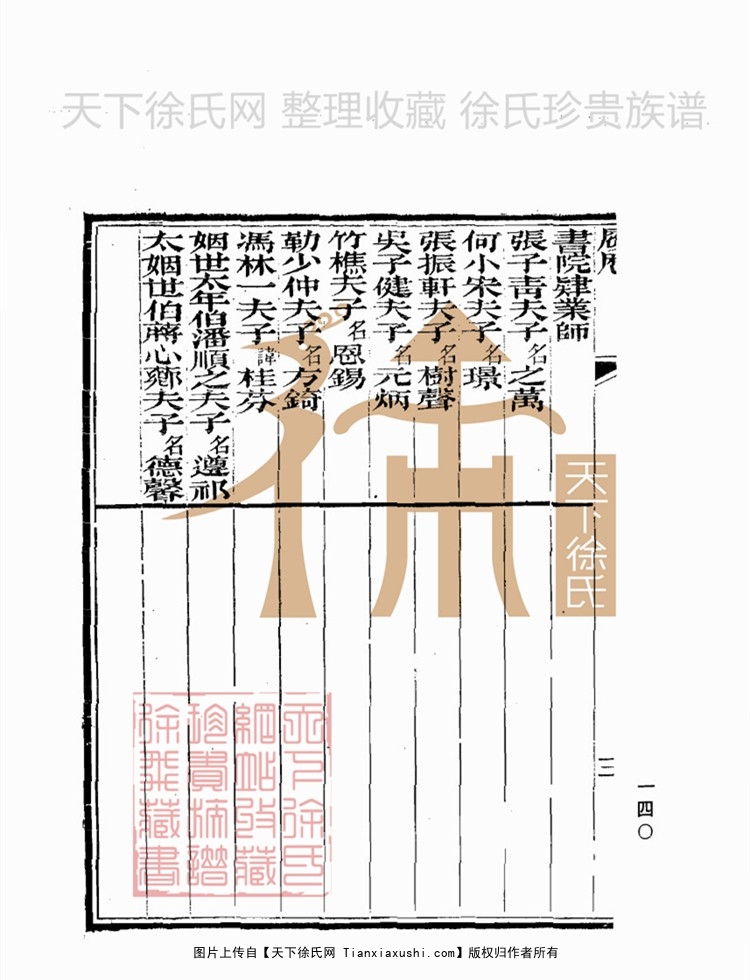 天下徐氏网 整理收藏 徐氏珍贵族谱
書院肄業師
張子青夫子名之萬
何小宋夫子名璟
張振軒夫子名樹聲
吳子健夫子名元炳
竹樵夫子名恩錫
勒少仲夫子名方錡
馮林一夫子諱桂芬
姻世太年伯潘順之夫子名遵祁
太姻世伯蔣心薌夫子名德馨
三
一四〇
天下徐氏
天下徐氏
網站收藏
珍貴族譜
徐氏藏書
图片上传自【天下徐氏网 Tianxiaxushi.com】版权归作者所有